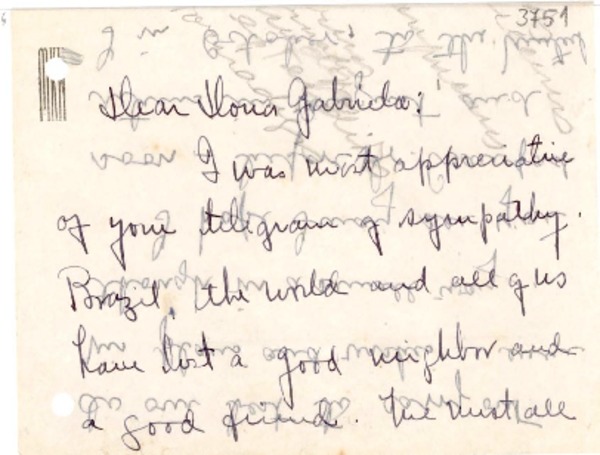 3751
Dear Dona Gabriela:
I was most appreciative
of your telegram of sympathy.
Brazil, the world and all of us
have lost a good neighbor and
a good friend. We must all